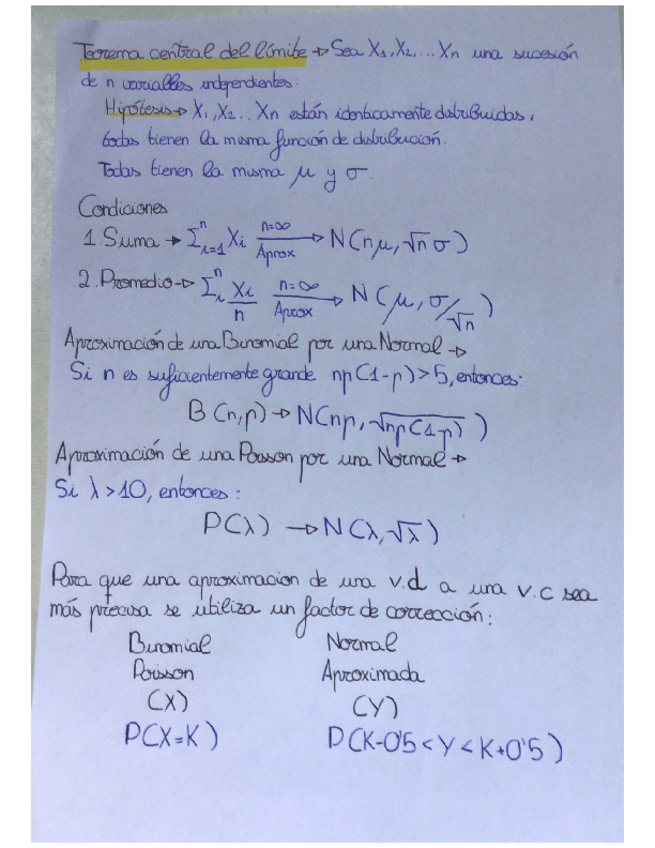 Teorema central del límite → Sea X₁, X₂, ... Xn una sucesión
de n variables independientes:
Hipótesis → X₁, X₂ ... Xn están identicamente distribuidas,
todas tienen la misma función de distribución.
Todas tienen la misma μ y σ.
Condiciones
1. Suma → Σⁿᵢ₌₁ Xi —n=∞ Aprox→ N(nμ, √n σ)
2. Promedio → Σⁿᵢ Xi/n —n=∞ Aprox→ N(μ, σ/√n)
Aproximación de una Binomial por una Normal →
Si n es suficientemente grande np(1-p) > 5, entonces:
B(n,p) → N(np, √np(1-p))
Aproximación de una Poisson por una Normal →
Si λ > 10, entonces:
P(λ) → N(λ, √λ)
Para que una aproximacion de una v.d a una v.c sea
más precisa se utiliza un factor de corrección:
Binomial Normal
Poisson Aproximada
(X) (Y)
P(X=K) P(K-0'5 < Y < K+0'5)